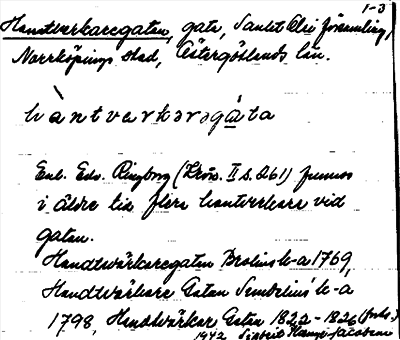 1-3
Hantverkaregatan, gata, Sankt Olai församling,
Norrköpings stad, Östergötlands län.
hàntverkərəgáta
Enl. Edv. Ringborg (Krön. II s. 261) funnos
i äldre tid flera hantverkare vid
gatan.
Handtwärkaregatan Brolius k-a 1769,
Handtwärkare Gatan Sundelius k-a
1798, Handtwärkar Gatan 1822-1826 (prob.)
1942 Sigbrit